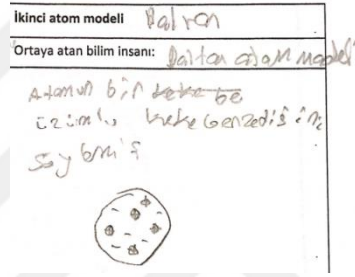 İkinci atom modeli Dalton
Ortaya atan bilim insanı: Daltan atom modeli
Atamun bir keke be
üzümlü keke benzediğini
söylemiş